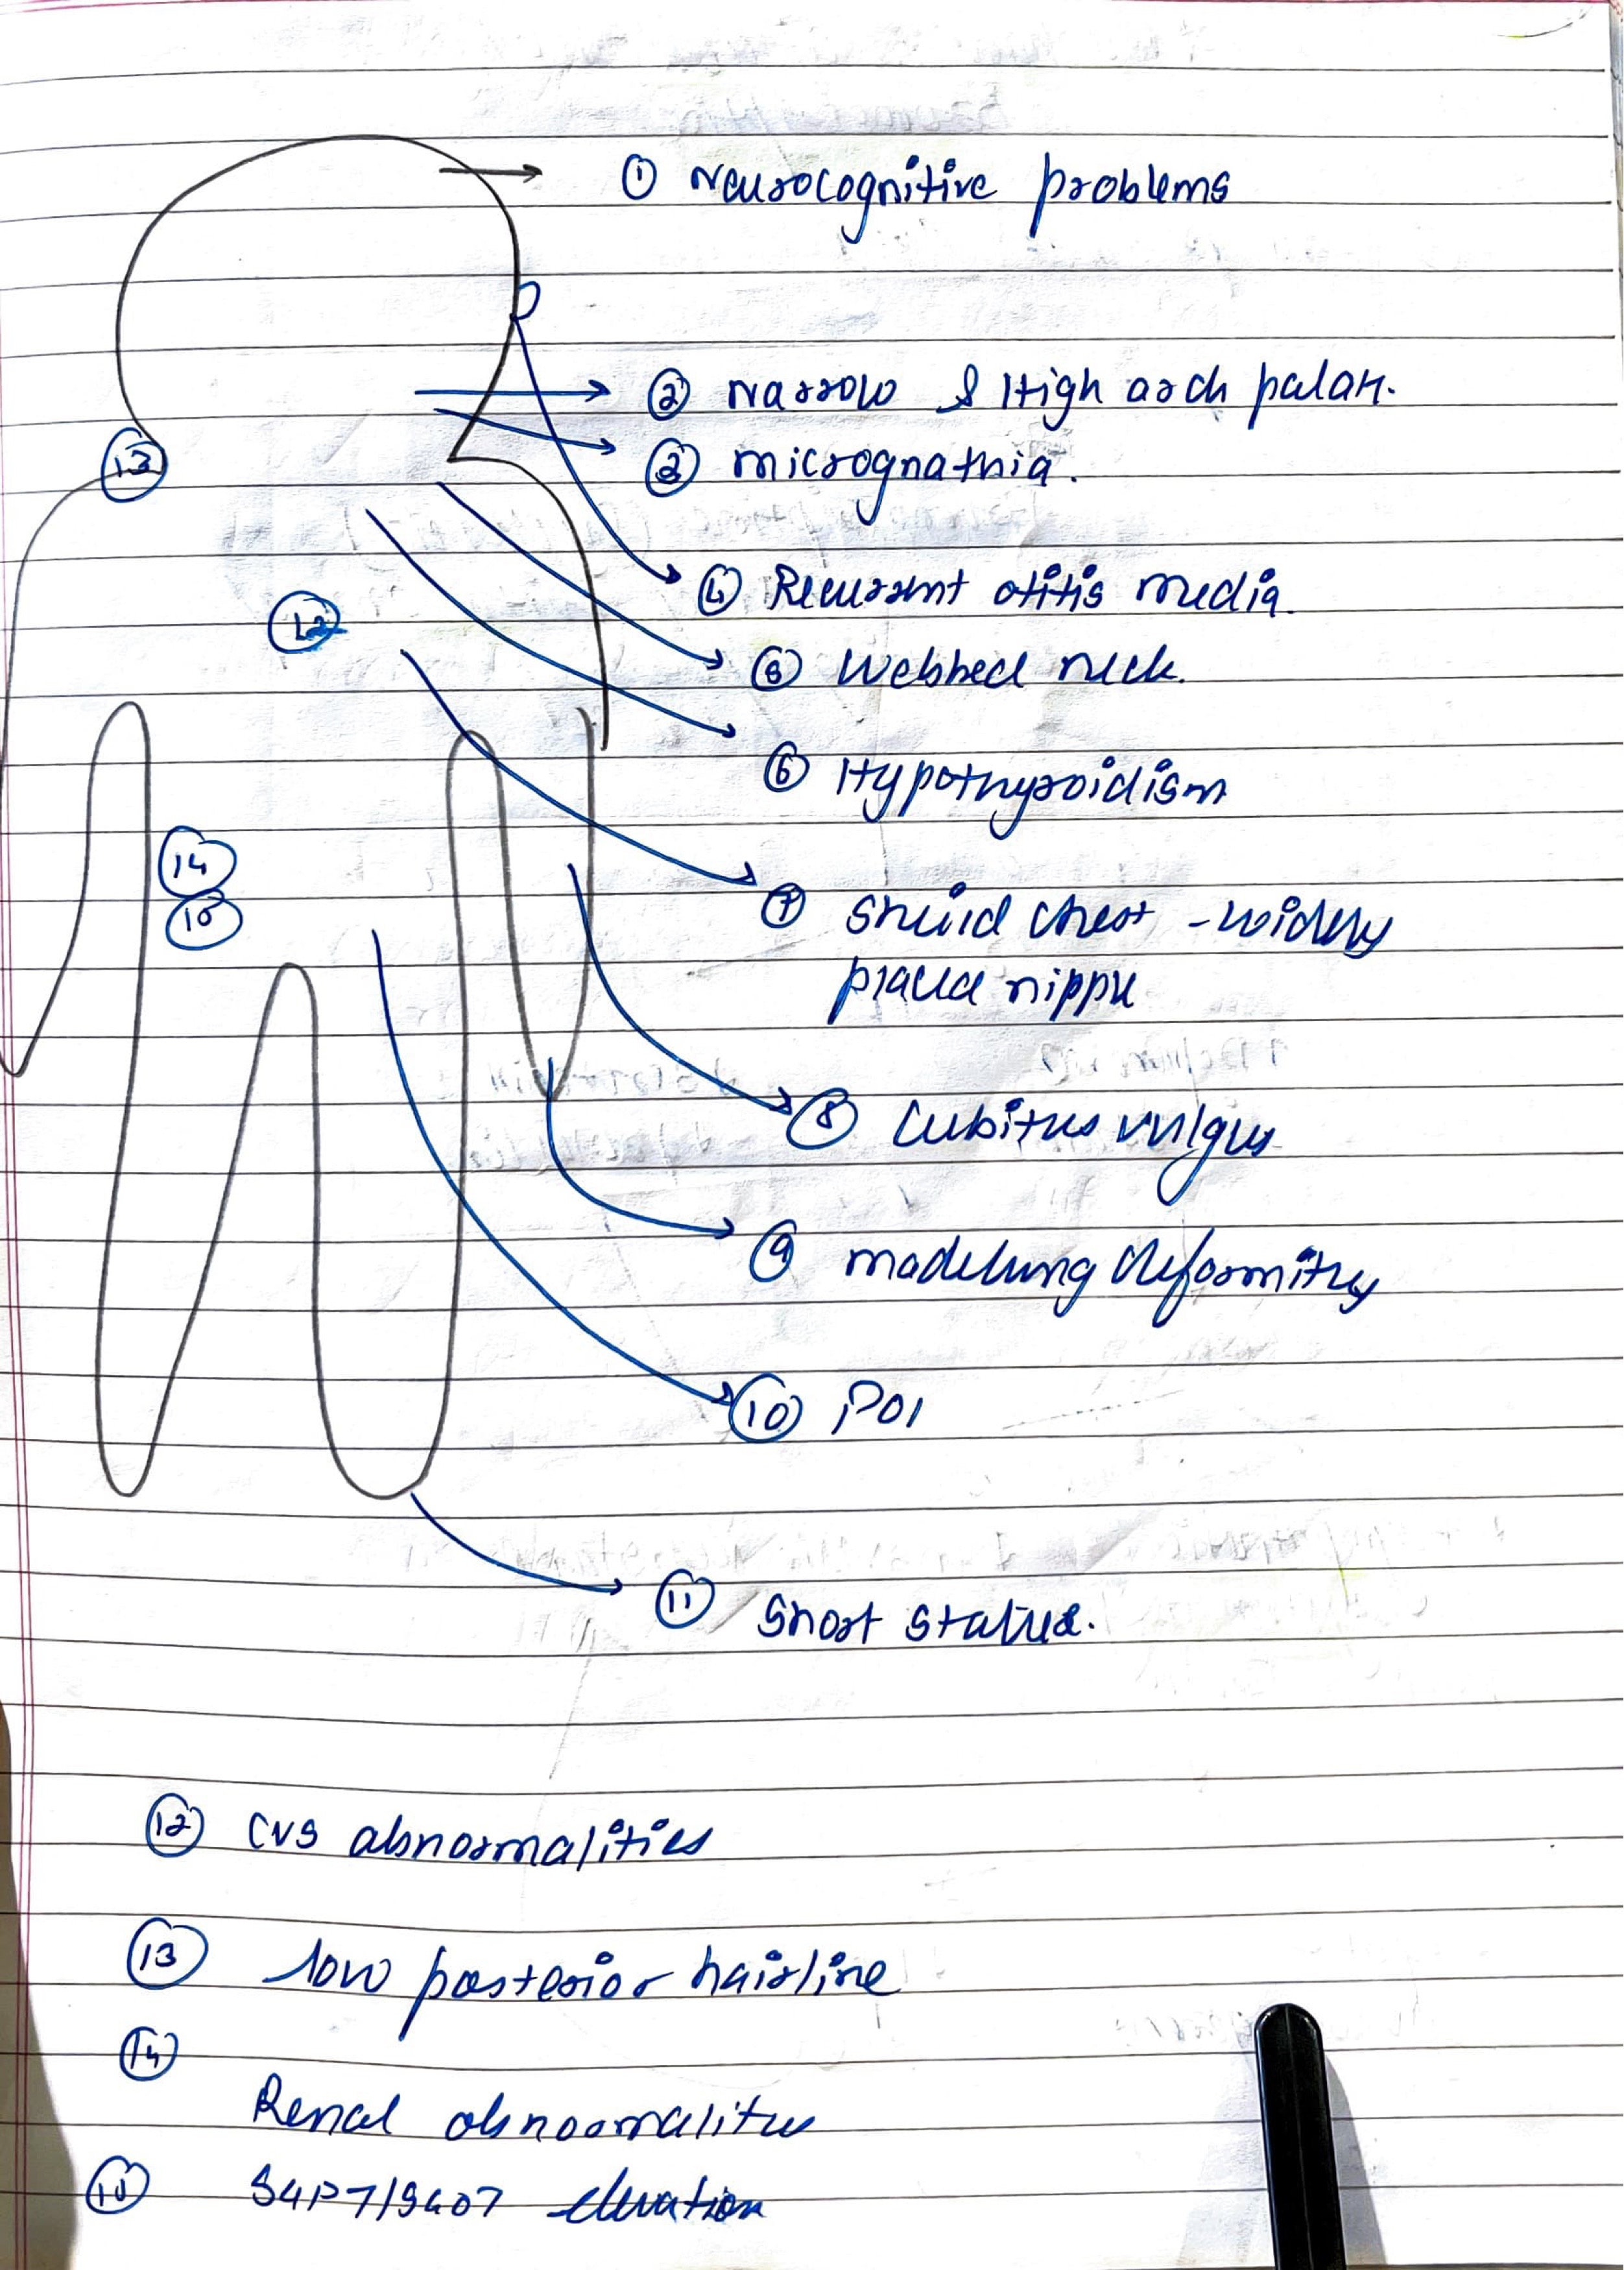 ① Neurocognitive problems
② Narrow & High arch palate.
③ micrognathia.
④ Recurrent otitis media.
⑤ Webbed neck.
⑥ Hypothyroidism
⑦ Shield chest - widely
placed nipple
⑧ Cubitus vulgus
⑨ madelung deformity
⑩ POI
⑪ Short stature.
⑬
⑫
⑭
⑮
⑫ CVS abnormalities
⑬ low posterior hairline
⑭
Renal abnormalities
⑮ SGPT/SGOT elevation